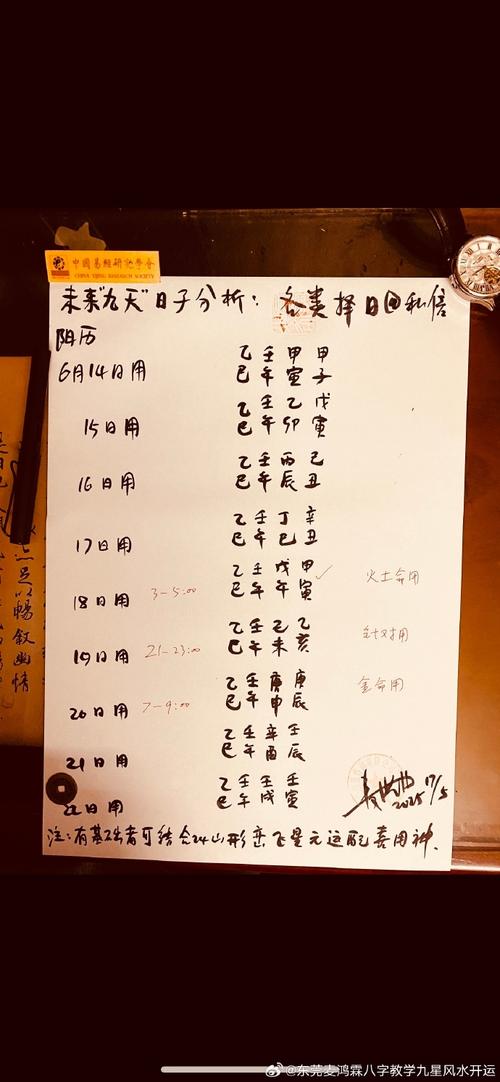 中國易經研究學會
CHINA YIJING RESEARCH SOCIETY
未来"九天"日子分析: 各类择日@私信
阳历
乙壬甲甲
6月14日用 巳午寅子
乙壬乙戊
15日用 巳午卯寅
乙壬丙己
16日用 巳午辰丑
乙壬丁辛
17日用 巳午巳丑
乙壬戊甲 ✓ 火土命用
18日用 3-5:00 巳午午寅
乙壬己乙 针对用
19日用 21-23:00 巳午未亥
乙壬庚庚 金命用
20日用 7-9:00 巳午申辰
乙壬辛壬
21日用 巳午酉辰
乙壬壬壬
22日用 巳午戌寅
2025 17/5
注:有基础者可结合24山形峦飞星元运配喜用神.
足以暢叙幽情
@东莞麦鸿霖八字教学九星风水开运